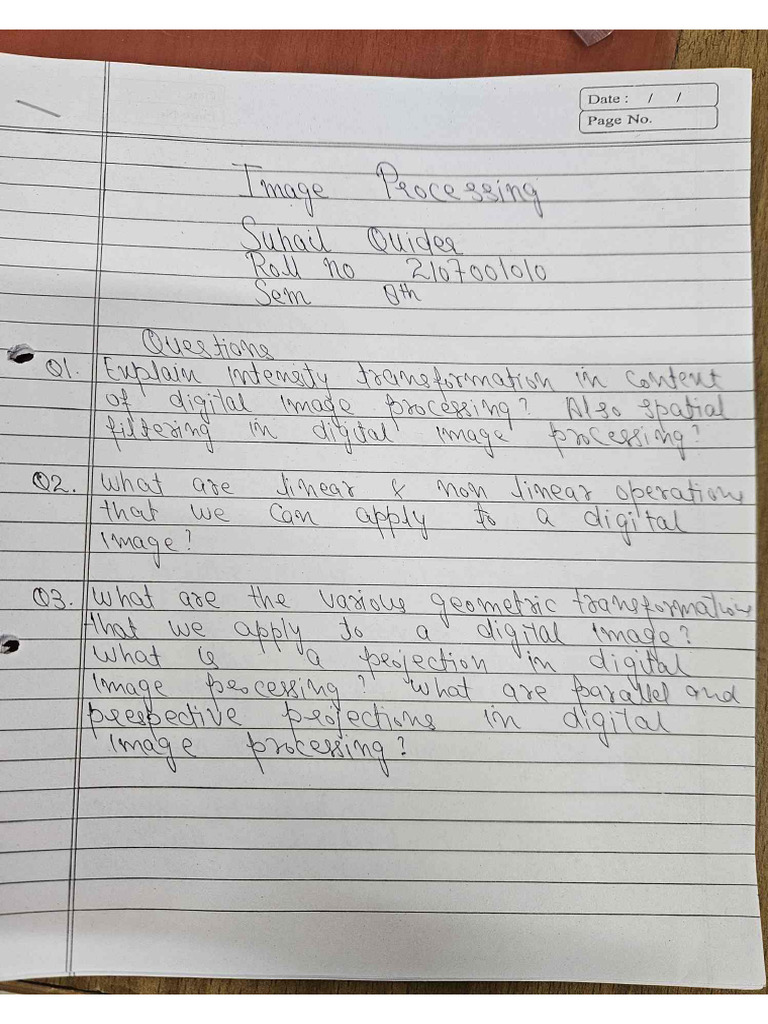 Date : / /
Page No.
Image Processing
Suhail Quider
Roll no 2107001010
Sem 8th
Questions
Q1. Explain intensity transformation in content
of digital image processing? Also spatial
filtering in digital image processing?
Q2. What are linear & non linear operations
that we can apply to a digital
image?
Q3. What are the various geometric transformations
that we apply to a digital image?
What is a projection in digital
image processing? What are parallel and
prespective projections in digital
image processing?